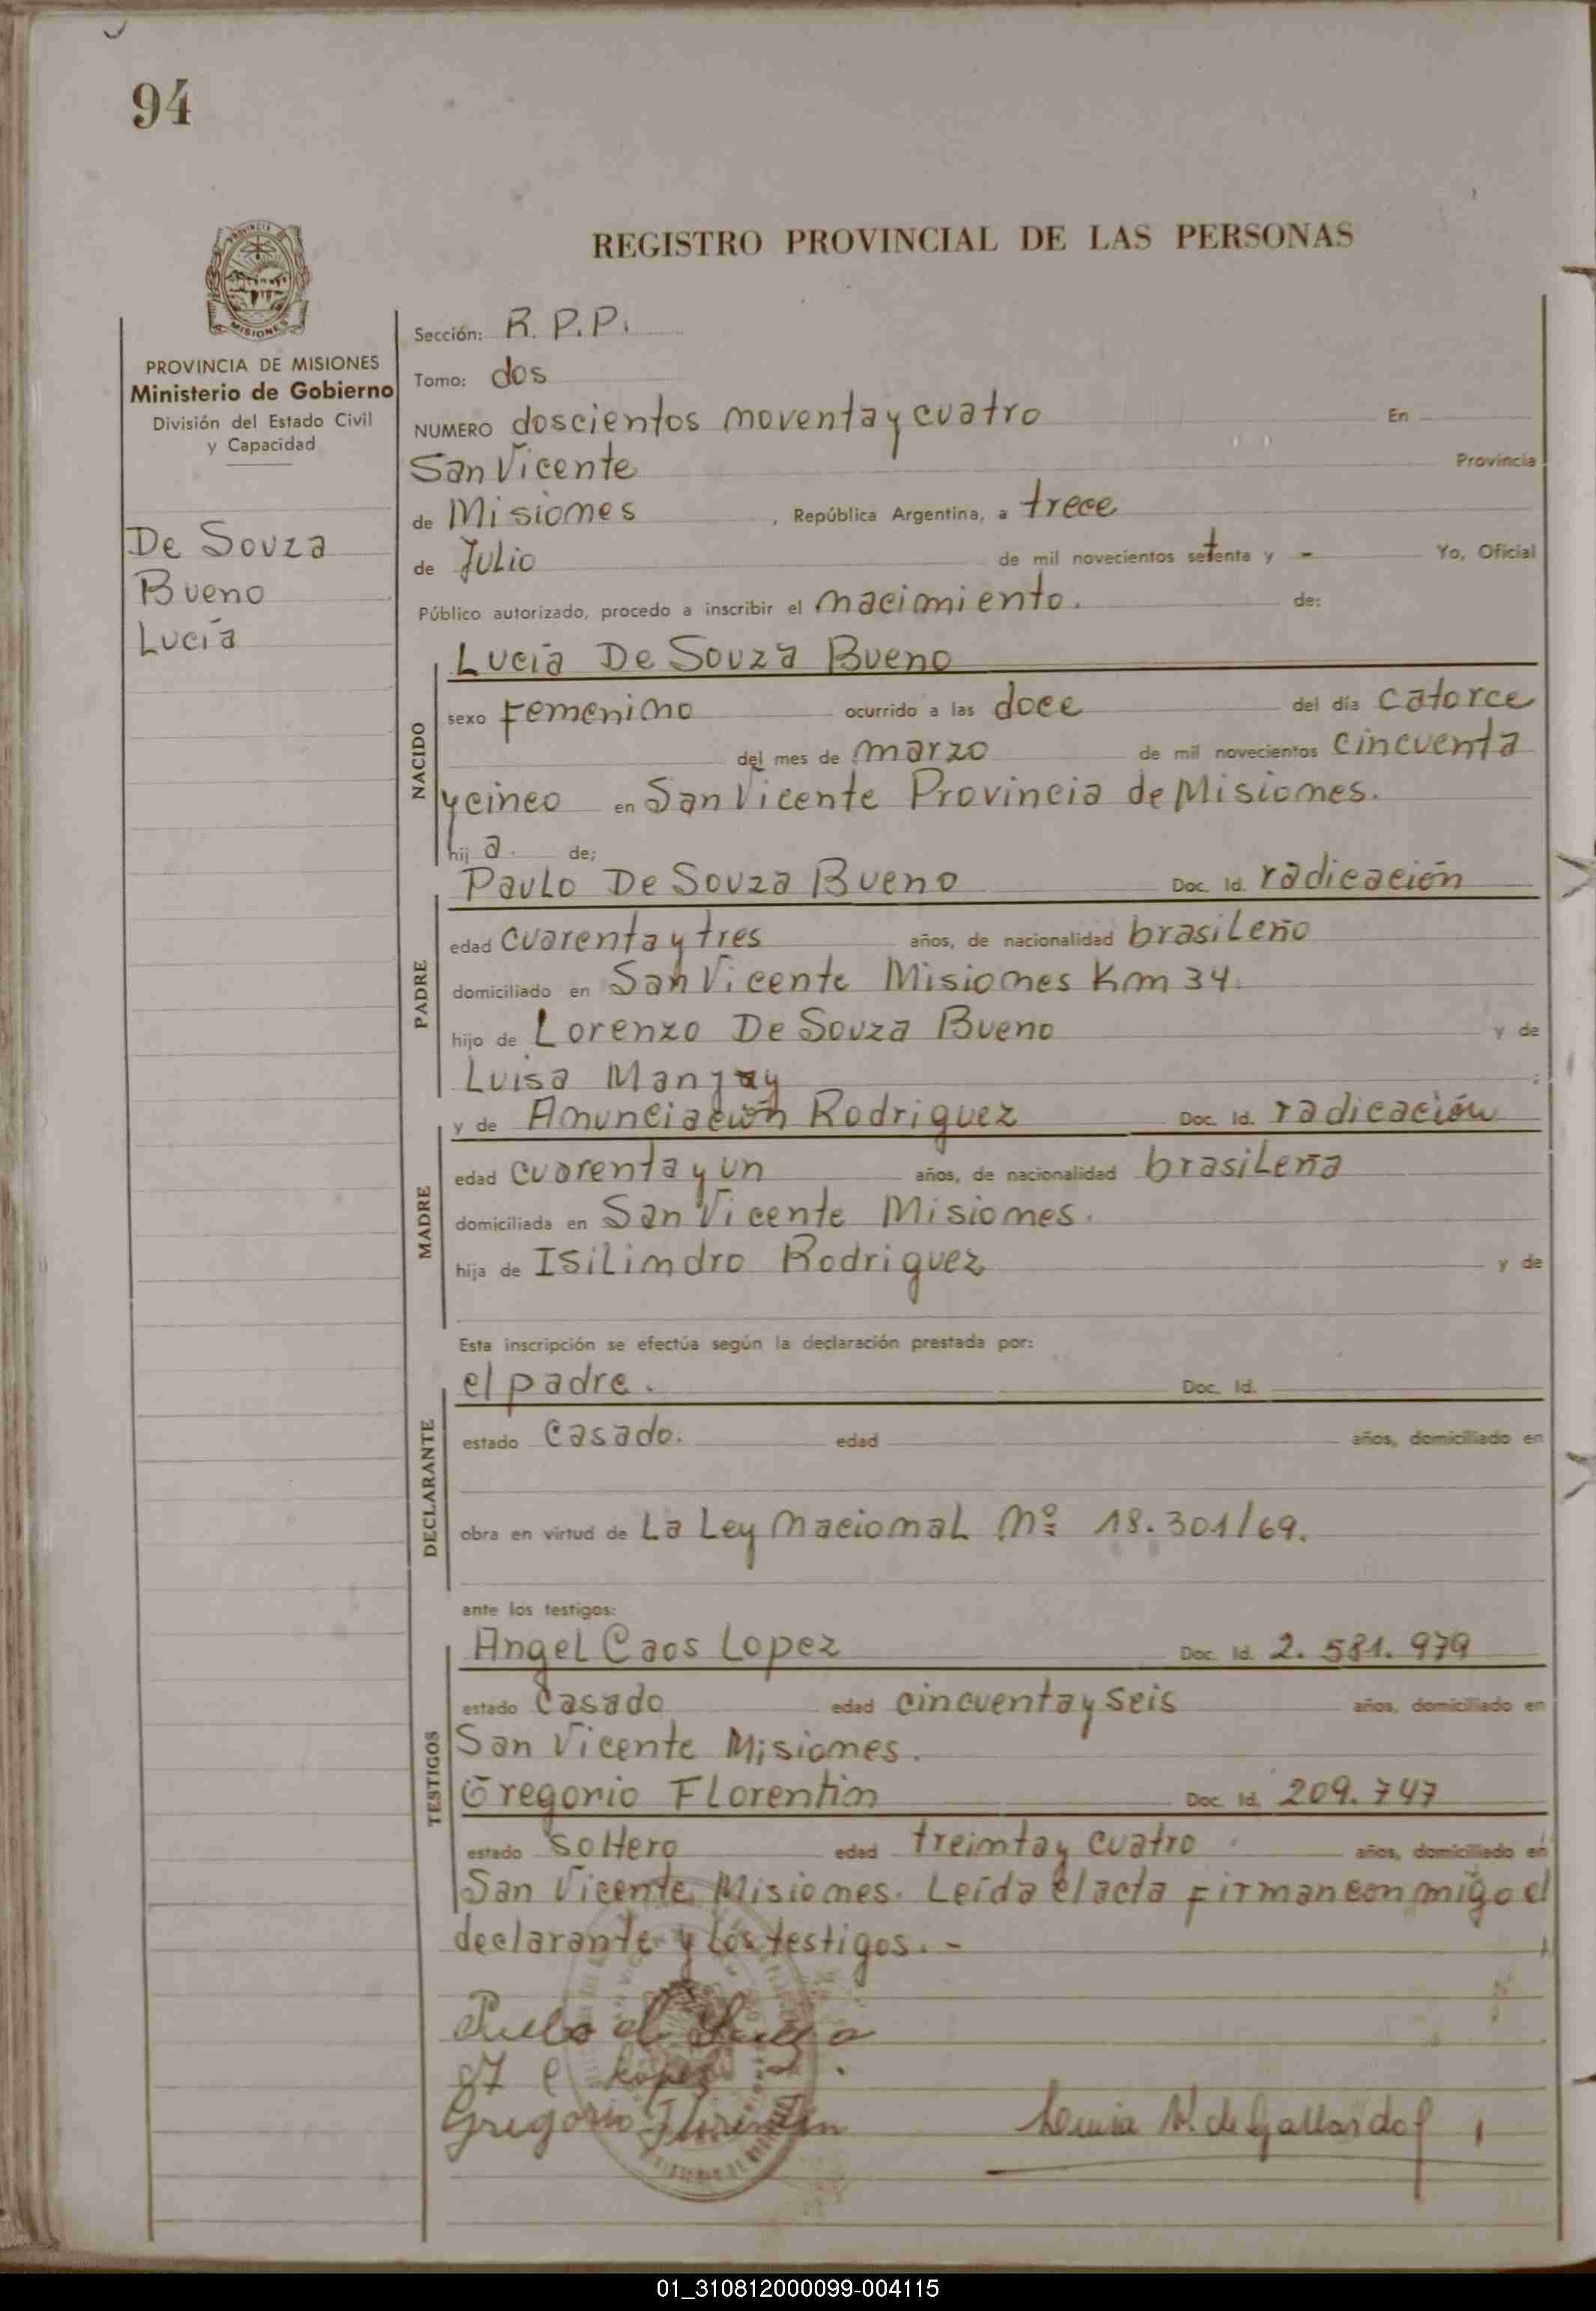 94
PROVINCIA DE MISIONES
Ministerio de Gobierno
División del Estado Civil
y Capacidad
De Souza
Bueno
Lucía
REGISTRO PROVINCIAL DE LAS PERSONAS
Sección: R. P. P.
Tomo: dos
NUMERO doscientos noventa y cuatro En
San Vicente Provincia
de Misiones, República Argentina, a trece
de Julio de mil novecientos setenta y - Yo, Oficial
Público autorizado, procedo a inscribir el nacimiento. de:
NACIDO
Lucía De Souza Bueno
sexo Femenino ocurrido a las doce del día catorce
del mes de marzo de mil novecientos cincuenta
y cinco en San Vicente Provincia de Misiones.
hij a. de;
PADRE
Paulo De Souza Bueno Doc. Id. radicación
edad cuarenta y tres años, de nacionalidad brasileño
domiciliado en San Vicente Misiones Km 34.
hijo de Lorenzo De Souza Bueno y de
Luisa
MADRE
y de Anunciación Rodriguez Doc. Id. radicación
edad cuarenta y un años, de nacionalidad brasileña
domiciliada en San Vicente Misiones.
hija de Isilindro Rodriguez y de
Esta inscripción se efectúa según la declaración prestada por:
DECLARANTE
el padre. Doc. Id.
estado Casado. edad años, domiciliado en
obra en virtud de La Ley Nacional Nº 18.301/69.
ante los testigos:
TESTIGOS
Angel Caos Lopez Doc. Id. 2. 581. 979
estado Casado edad cincuenta y seis años, domiciliado en
San Vicente Misiones.
Gregorio Florentin Doc. Id. 209. 747
estado soltero edad treinta y cuatro años, domiciliado en
San Vicente Misiones. Leída el acta firman conmigo el
declarante y los testigos. -
Lopez
Gregorio Florentin
de Gallardo
01_310812000099-004115